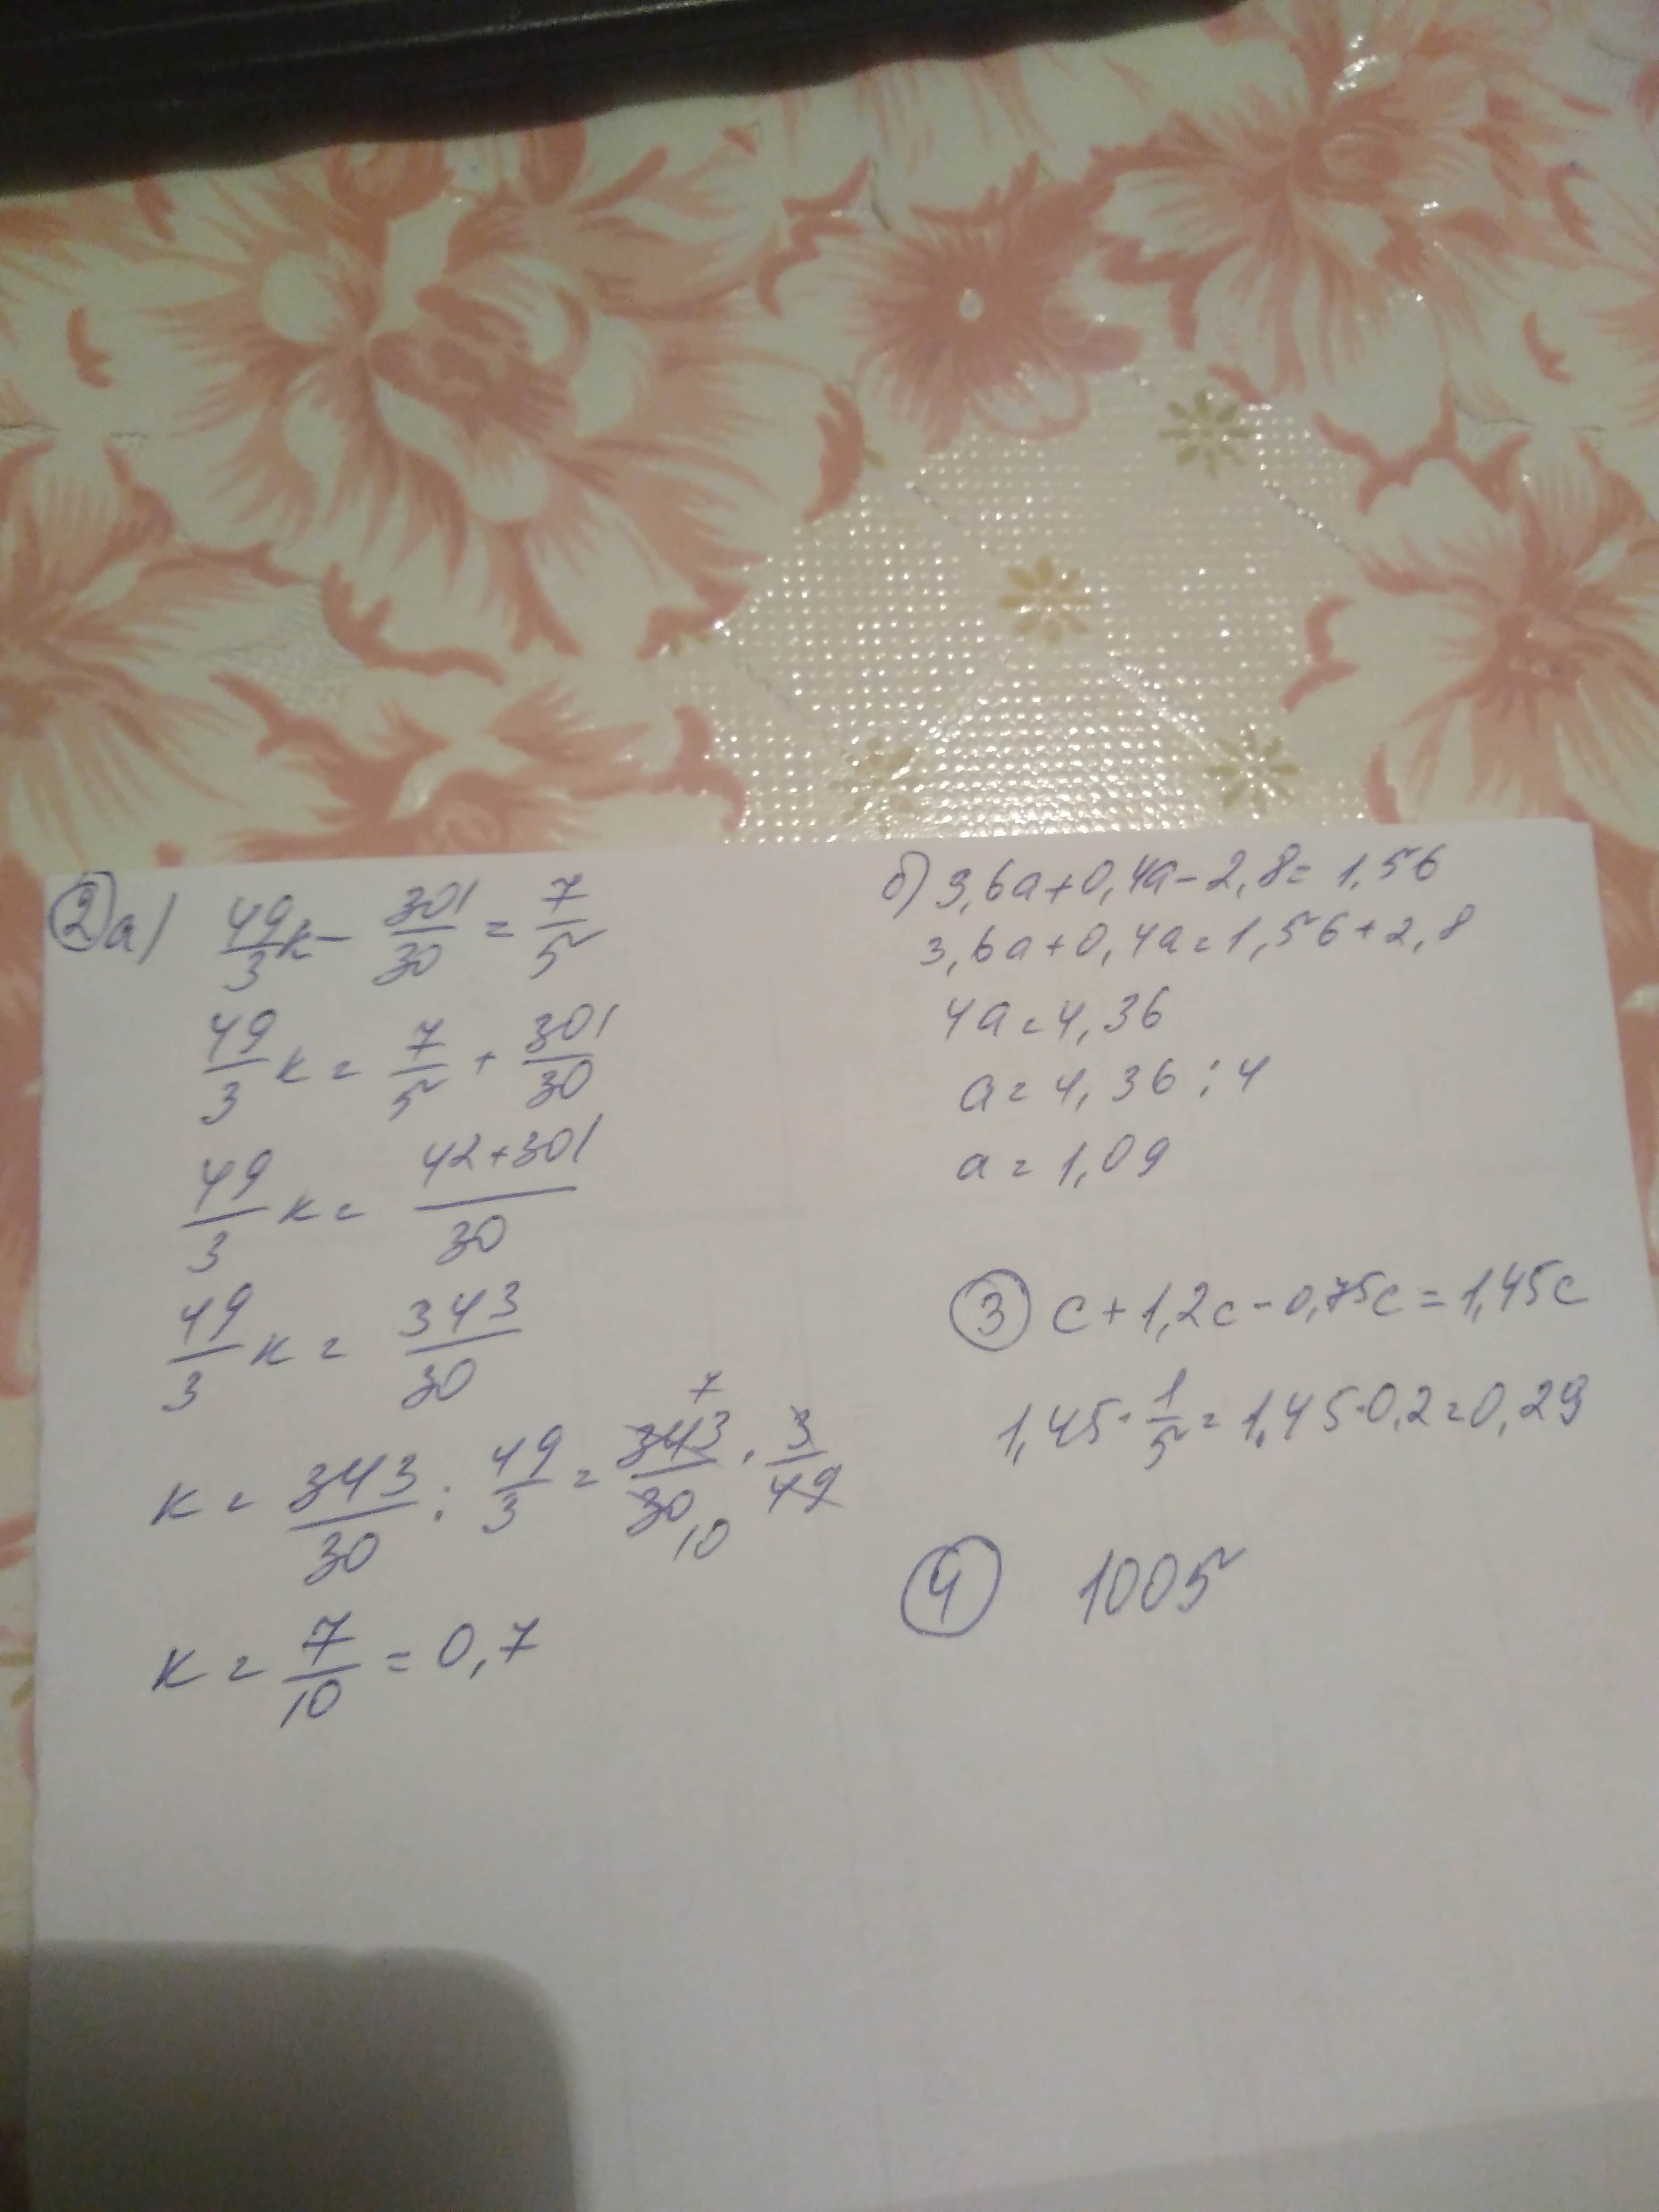 ② а) 49/3 к - 301/30 = 7/5
49/3 к = 7/5 + 301/30
49/3 к = 42+301/30
49/3 к = 343/30
к = 343/30 : 49/3 = 343/30 · 3/49
7
10
к = 7/10 = 0,7
б) 3,6а+0,4а-2,8=1,56
3,6а+0,4а=1,56+2,8
4а=4,36
а=4,36:4
а=1,09
③ с+1,2с-0,75с=1,45с
1,45·1/5=1,45·0,2=0,29
④ 1005